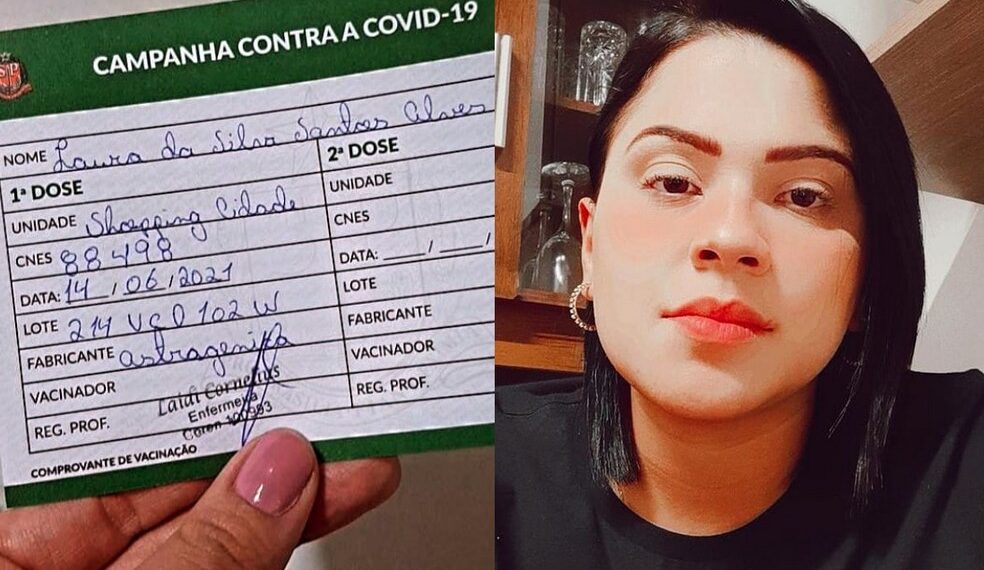 SP
CAMPANHA CONTRA A COVID-19
NOME Laura da Silva Santos Alves
1ª DOSE
UNIDADE Shopping Cidade
CNES 88498
DATA: 14/06/2021
LOTE 214 VCD 102 W
FABRICANTE astragenika
VACINADOR
REG. PROF.
Laidi Cornelius
Enfermeira
Coren
COMPROVANTE DE VACINAÇÃO
2ª DOSE
UNIDADE
CNES
DATA: ___/___/
LOTE
FABRICANTE
VACINADOR
REG. PROF.